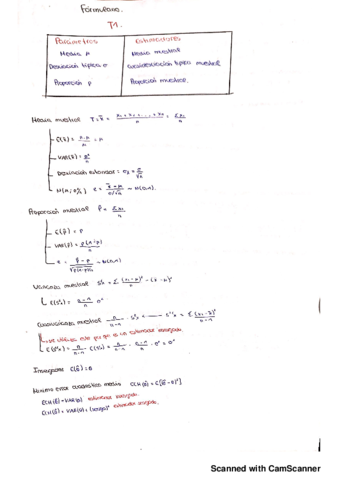 Formulario.
T1
Parámetros Estimadores
Media μ Media muestral
Desviación típica σ Cuasidesviación típica muestral
Proporción p Proporción muestral.
Media muestral T = x̄ = (x₁ + x₂ + ... + xₙ)/n = Σxᵢ/n
E(x̄) = n·μ/n = μ
VAR(x̄) = σ²/n
Desviación estandar: σx̄ = σ/√n
N(μ, σ²/n) z = (x̄ - μ)/(σ/√n) ~ N(0,1).
Proporción muestral p̂ = Σxᵢ/n
E(p̂) = p
VAR(p̂) = p(1-p)/n
z = (p̂ - p)/√(p(1-p)/n) ~ N(0,1)
Varianza muestral S² = Σ
Cuasivarianza muestral
se utiliza esta porque es un estimador insesgado.
Insesgadez E(θ̂) = θ
error cuadrático medio ECM(θ̂) = E[(θ̂ - θ)²]
ECM(θ̂) = VAR(θ̂) estimador insesgado
ECM(θ̂) = VAR(θ̂) + (sesgo)² estimador sesgado.
Scanned with CamScanner